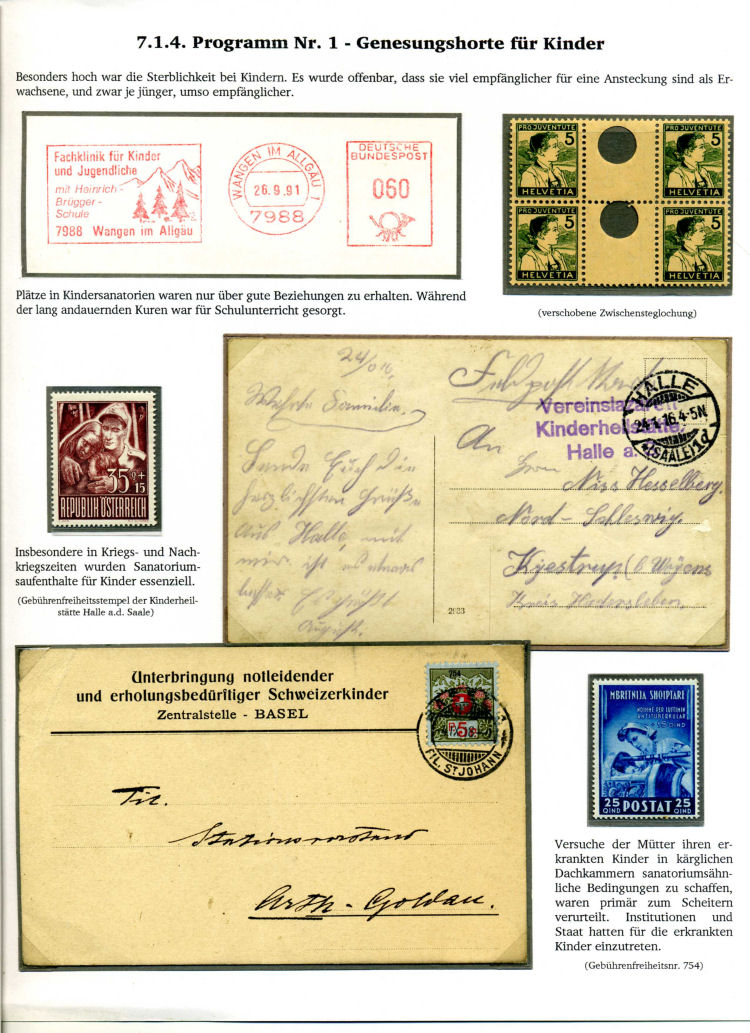 7.1.4. Programm Nr. 1 - Genesungshorte für Kinder
Besonders hoch war die Sterblichkeit bei Kindern. Es wurde offenbar, dass sie viel empfänglicher für eine Ansteckung sind als Er-
wachsene, und zwar je jünger, umso empfänglicher.
Fachklinik für Kinder
und Jugendliche
mit Heinrich-
Brügger-
Schule
7988 Wangen im Allgäu
WANGEN IM ALLGÄU 1
26.9.91
7988
DEUTSCHE
BUNDESPOST
060
PRO JUVENTUTE 5
HELVETIA
PRO JUVENTUTE 5
HELVETIA
PRO JUVENTUTE 5
HELVETIA
PRO JUVENTUTE 5
HELVETIA
Plätze in Kindersanatorien waren nur über gute Beziehungen zu erhalten. Während
der lang andauernden Kuren war für Schulunterricht gesorgt.
(verschobene Zwischensteglochung)
35 g +
15
REPUBLIK ÖSTERREICH
Insbesondere in Kriegs- und Nach-
kriegszeiten wurden Sanatorium-
saufenthalte für Kinder essenziell.
(Gebührenfreiheitsstempel der Kinderheil-
stätte Halle a.d. Saale)
Werte Familie,
Sende Euch die
herzlichsten Grüße
aus Halle, mit
mir ist es etwas
besser.
August.
Feldpost
Vereinslazarett
Kinderheilstätte
Halle a.
HALLE
24.1.16 4-5N
(SAALE) 1d
An
Herrn
Niss Hesselberg.
Nord-Schleswig.
Kjestrup
Kreis Hadersleben
Unterbringung notleidender
und erholungsbedürftiger Schweizerkinder
Zentralstelle - BASEL
754
5
FIL. ST JOHANN
Tit.
Stationsvorstand
Arth-Goldau.
MBRETNIJA SHQIPTARE
NDIHME PER LUFTIMIN
ANTITUBERKULAR
25 POSTAT 25
QIND QIND
Versuche der Mütter ihren er-
krankten Kinder in kärglichen
Dachkammern sanatoriumsähn-
liche Bedingungen zu schaffen,
waren primär zum Scheitern
verurteilt. Institutionen und
Staat hatten für die erkrankten
Kinder einzutreten.
(Gebührenfreiheitsnr. 754)